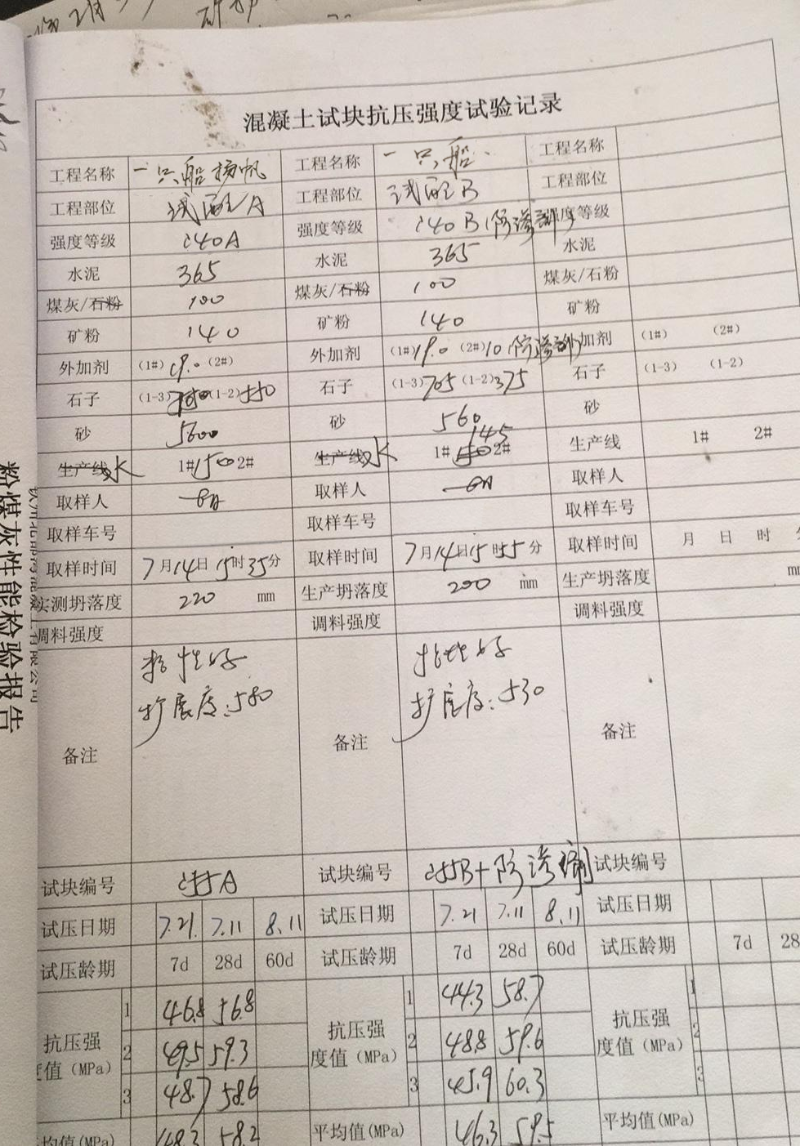 混凝土试块抗压强度试验记录
工程名称 一只船扬帆 工程名称 一只船 工程名称
工程部位 试配A 工程部位 试配B 工程部位
强度等级 C40A 强度等级 C40B(防渗剂) 强度等级
水泥 365 水泥 365 水泥
煤灰/石粉 100 煤灰/石粉 100 煤灰/石粉
矿粉 140 矿粉 140 矿粉
外加剂 (1#) 19.0 (2#) 外加剂 (1#) 19.0 (2#) 10(防渗剂) 加剂 (1#) (2#)
石子 (1-3) (1-2) 550 石子 (1-3) 705 (1-2) 375 石子 (1-3) (1-2)
砂 5600 砂 560 砂
生产线 水 1# 150 2# 生产线 水 1# 145 2# 生产线 1# 2#
取样人 取样人 取样人
取样车号 取样车号 取样车号
取样时间 7月14日15时35分 取样时间 7月14日15时55分 取样时间 月 日 时
实测坍落度 220 mm 生产坍落度 200 mm 生产坍落度
调料强度 调料强度 调料强度
备注 扩展度:580 备注 扩展度:530 备注
试块编号 C55A 试块编号 C55B+防渗剂 试块编号
试压日期 7.21 7.11 8.11 试压日期 7.21 7.11 8.11 试压日期
试压龄期 7d 28d 60d 试压龄期 7d 28d 60d 试压龄期 7d 28
抗压强度值(MPa) 抗压强度值(MPa) 抗压强度值(MPa)
1 46.8 56.8 1 44.3 58.7 1
2 49.5 59.3 2 48.8 59.6 2
3 48.7 58.6 3 45.9 60.3 3
平均值(MPa) 48.3 58.2 平均值(MPa) 46.3 59.5 平均值(MPa)
粉煤灰性能检验报告